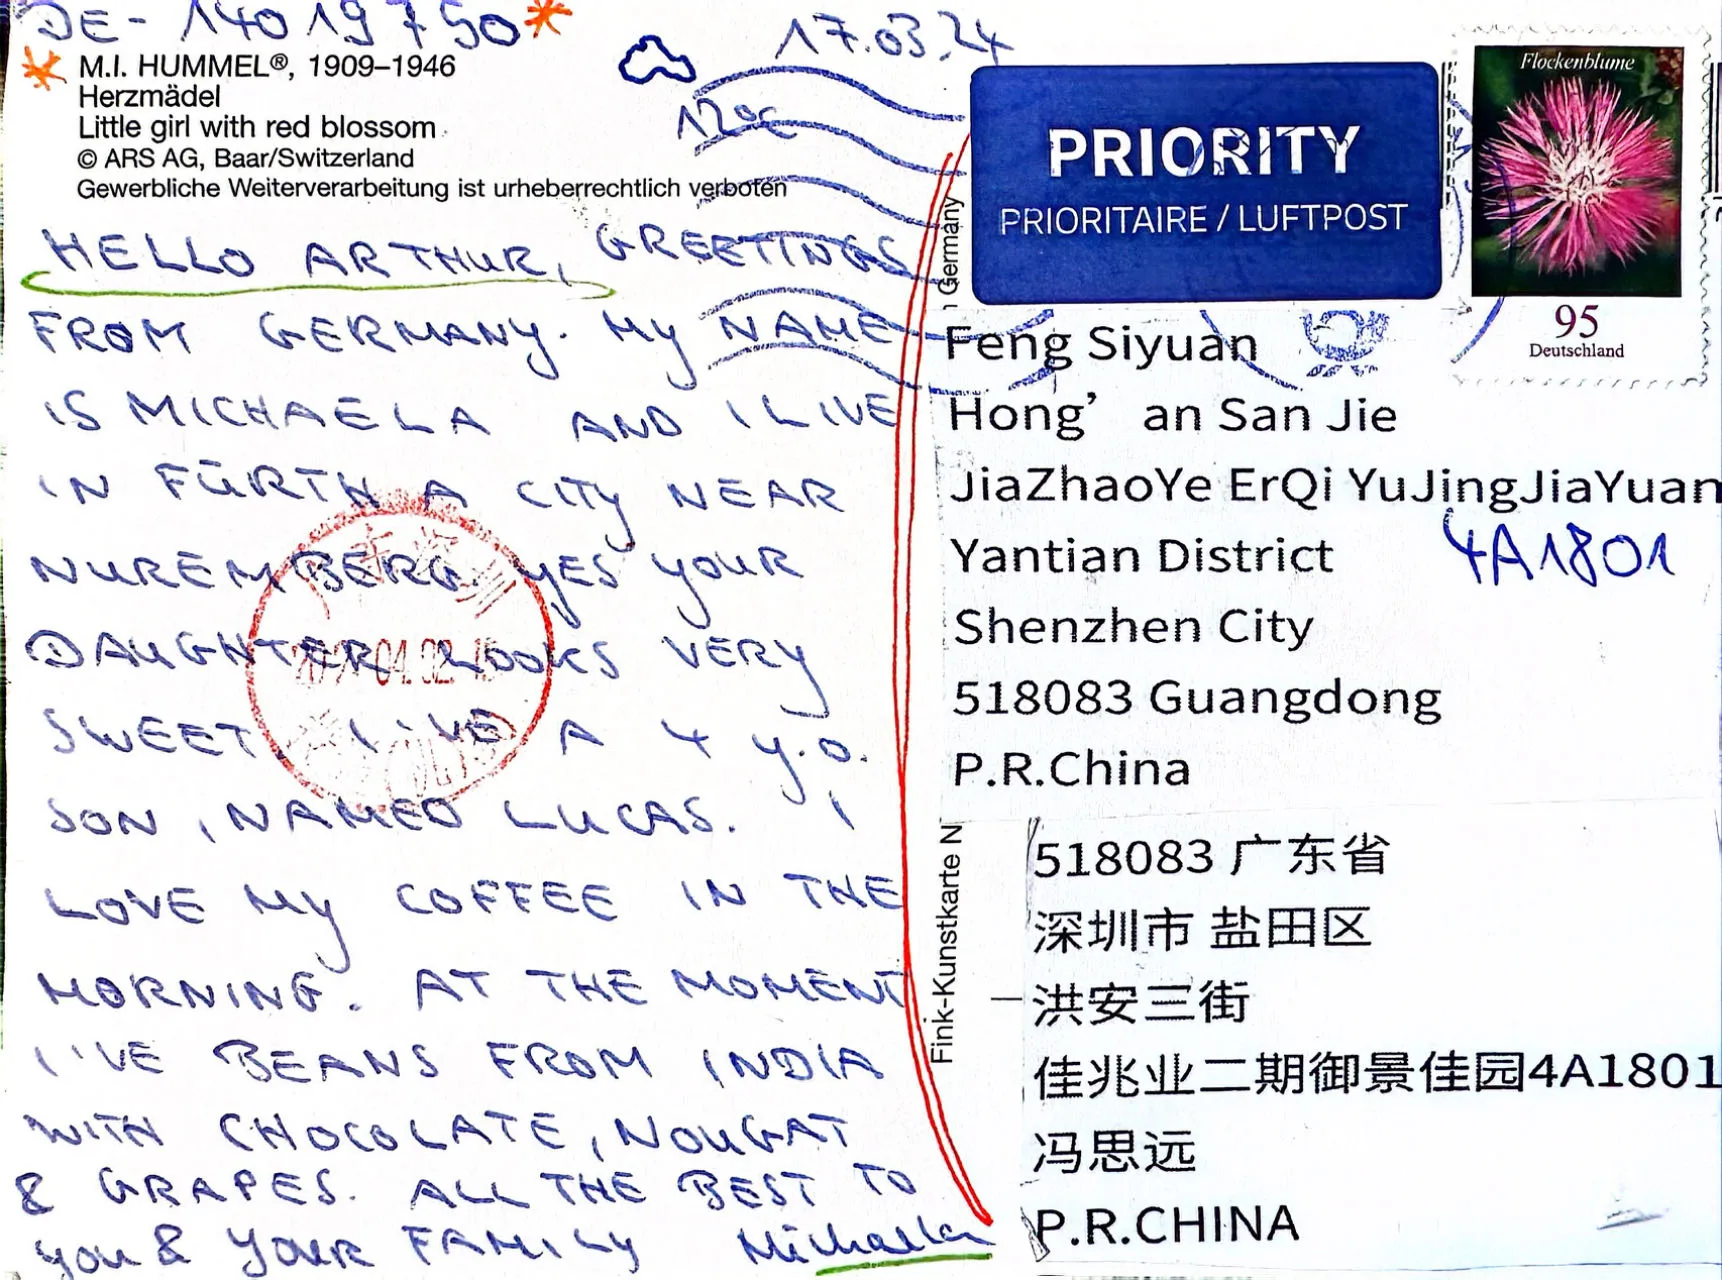 DE-14019750
17.03.24
M.I. HUMMEL®, 1909–1946
Herzmädel
Little girl with red blossom
© ARS AG, Baar/Switzerland
Gewerbliche Weiterverarbeitung ist urheberrechtlich verboten
12°C
HELLO ARTHUR, GREETINGS
FROM GERMANY. MY NAME
IS MICHAELA AND I LIVE
IN FÜRTH A CITY NEAR
NUREMBERG. YES YOUR
DAUGHTER LOOKS VERY
SWEET. I'VE A 4 y.o.
SON, NAMED LUCAS. I
LOVE MY COFFEE IN THE
MORNING. AT THE MOMENT
I'VE BEANS FROM INDIA
WITH CHOCOLATE, NOUGAT
& GRAPES. ALL THE BEST TO
YOU & YOUR FAMILY Michaela
Germany
Fink-Kunstkarte N
PRIORITY
PRIORITAIRE / LUFTPOST
Flockenblume
95
Deutschland
Feng Siyuan
Hong’ an San Jie
JiaZhaoYe ErQi YuJingJiaYuan
4A1801
Yantian District
Shenzhen City
518083 Guangdong
P.R.China
518083 广东省
深圳市 盐田区
洪安三街
佳兆业二期御景佳园4A1801
冯思远
P.R.CHINA